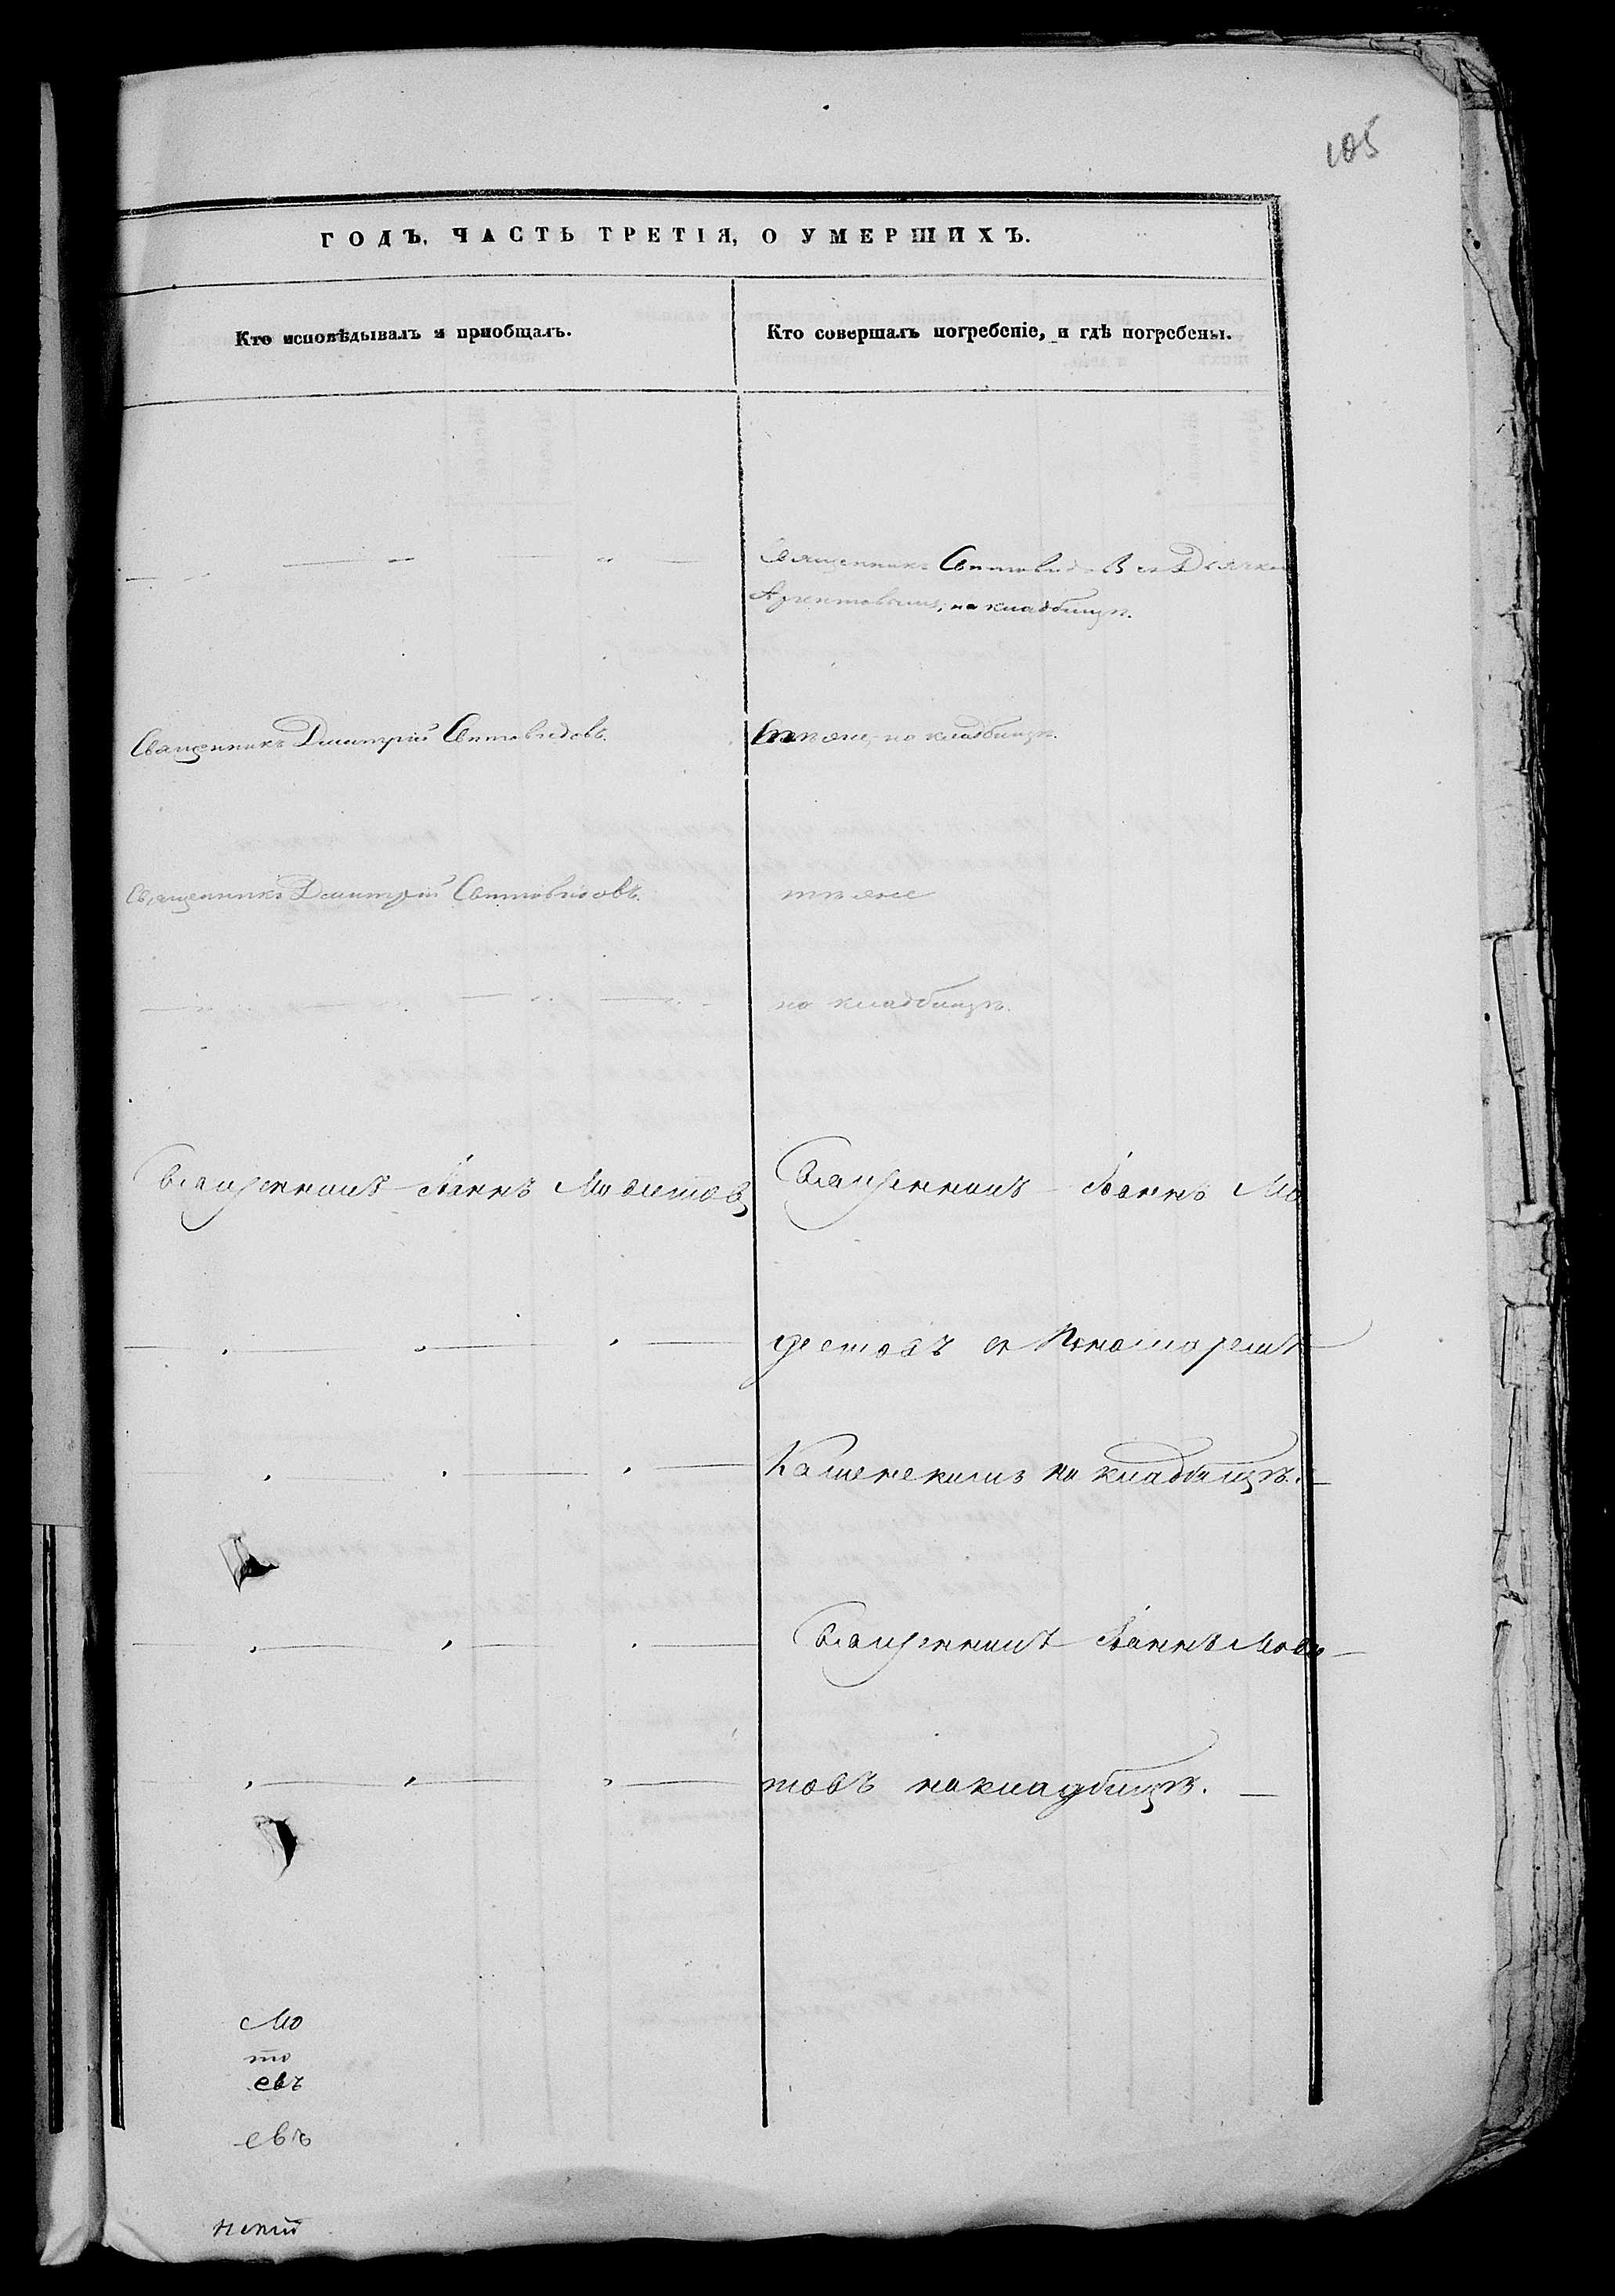 105
ГОДЪ, ЧАСТЬ ТРЕТІЯ, О УМЕРШИХЪ.
Кто исповѣдывалъ и пріобщалъ.
Кто совершалъ погребеніе, и гдѣ погребены.
Священникъ Свитовидовъ съ Дьячкомъ
Аргентовымъ, на кладбищѣ.
Священникъ Димитрій Свитовидовъ.
тѣ же, на кладбищѣ.
Священникъ Димитрій Свитовидовъ.
тѣ же
на кладбищѣ.
Священникъ Іоаннъ Модестовъ
Священникъ Іоаннъ Мо
дестовъ съ Пономаремъ
Каменскимъ на кладбищѣ.
Священникъ Іоаннъ Модес
товъ на кладбищѣ.
Мо
то
евъ
евъ
нскій